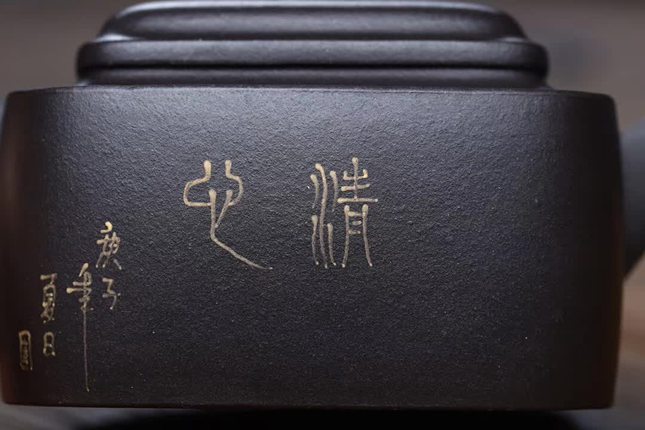 清心
庚子
年
夏日